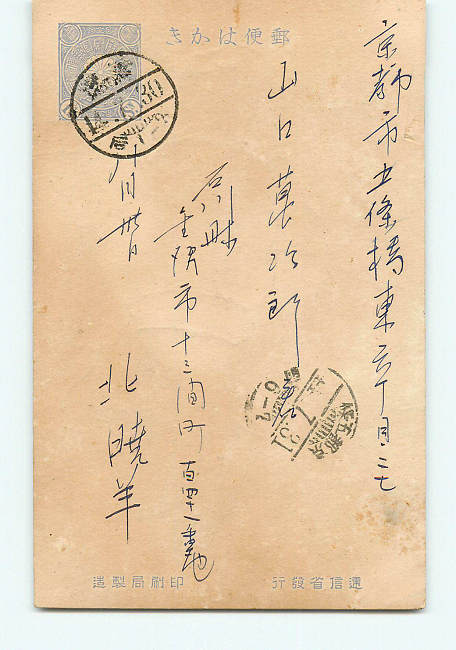 郵便はかき
京都市五條橋東六丁目二七
山口萬次郎
石川県
金沢市十三間町百四十八番地
月卅日
北暁羊
遞信省發行
印刷局製造